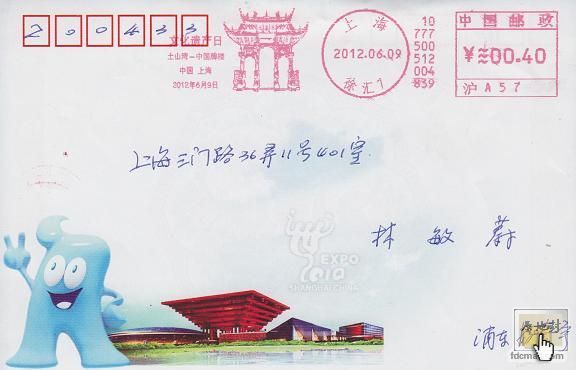 200433
文化遗产日
土山湾-中国牌楼
中国 上海
2012年6月9日
上 海
2012.06.09
徐汇1
10
777
500
512
004
839
中国邮政
¥≈00.40
沪 A57
上海三门路36弄11号401室
EXPO
2010
SHANGHAI CHINA
林敏蔚
浦东